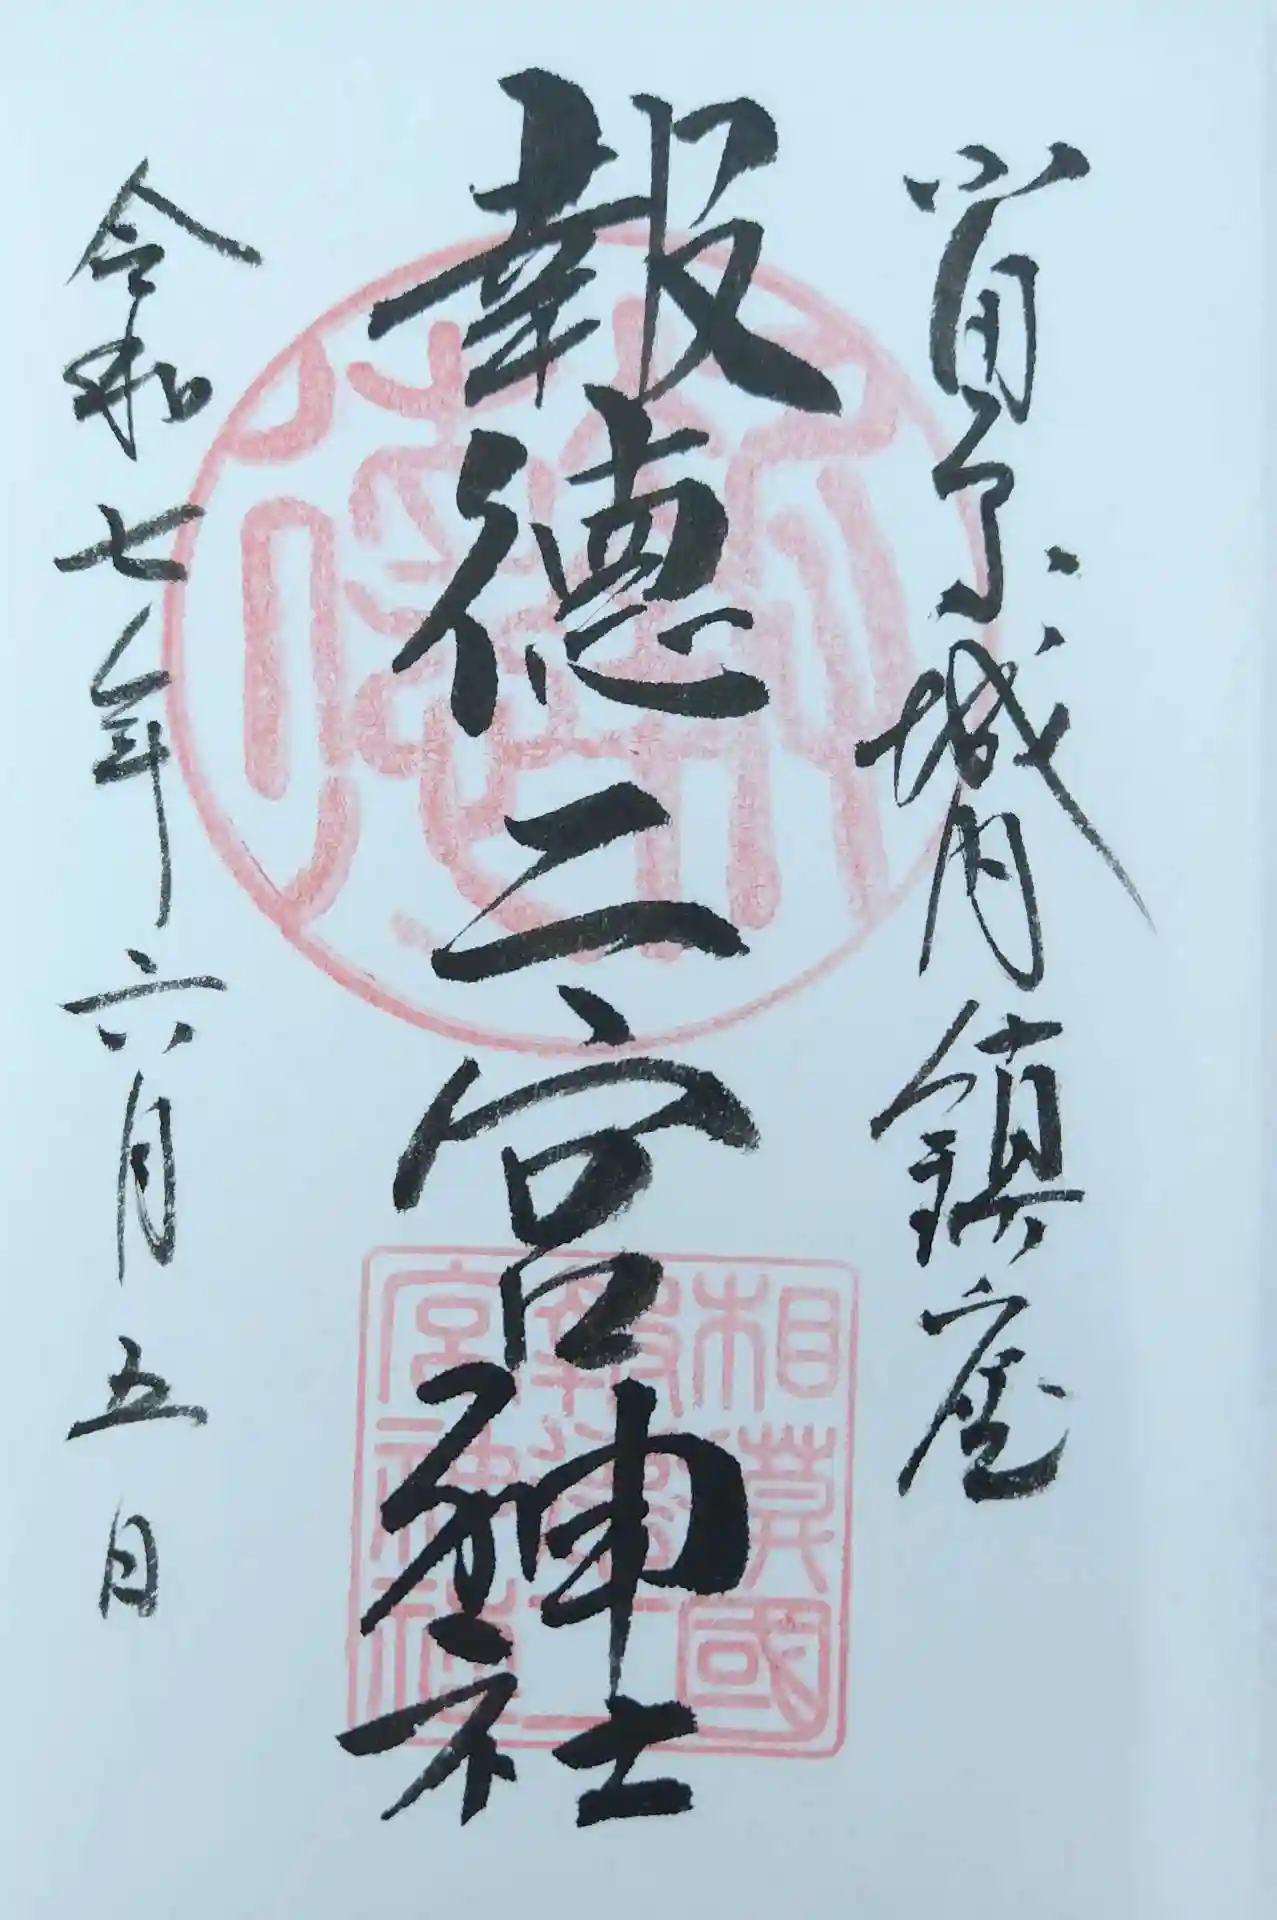 小田原城内鎮座
報徳二宮神社
令和七年六月五日
報徳
相莫國
報徳二
宮神社